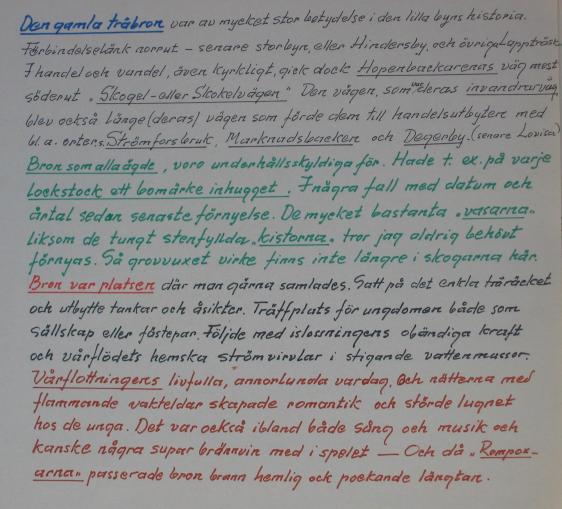 Den gamla träbron var av mycket stor betydelse i den lilla byns historia.
Förbindelselänk norrut – senare storbyn, eller Hindersby, och övriga Lappträsk.
I handel och vandel, även kyrkligt, gick dock Hopenbackarenas väg mest
söderut „Skogel- eller Skokelvägen" Den vägen, som var deras invandrarväg
blev också länge (deras) vägen som förde dem till handelsutbyten med
bl.a. orters. Strömforsbruk, Marknadsbacken och Degerby. (senare Lovisa)
Bron som alla ägde, voro underhållsskyldiga för. Hade t. ex. på varje
Lockstock ett bomärke inhugget. I några fall med datum och
årtal sedan senaste förnyelse. De mycket bastanta „vasarna"
liksom de tungt stenfyllda „kistorna„ tror jag aldrig behövt
förnyas. Så grovvuxet virke finns inte längre i skogarna här.
Bron var platsen där man gärna samlades. Satt på det enkla träräcket
och utbytte tankar och åsikter. Träffplats för ungdomen både som
sällskap eller fästepar. Följde med islossningens obändiga kraft
och vårflödets hemska strömvirvlar i stigande vattenmassor.
Vårflottningens livfulla, annorlunda vardag. Och nätterna med
flammande vakteldar skapade romantik och störde lugnet
hos de unga. Det var också ibland både sång och musik och
kanske några supar brännvin med i spelet — Och då „Rompox-
arna" passerade bron brann hemlig och pockande längtan.